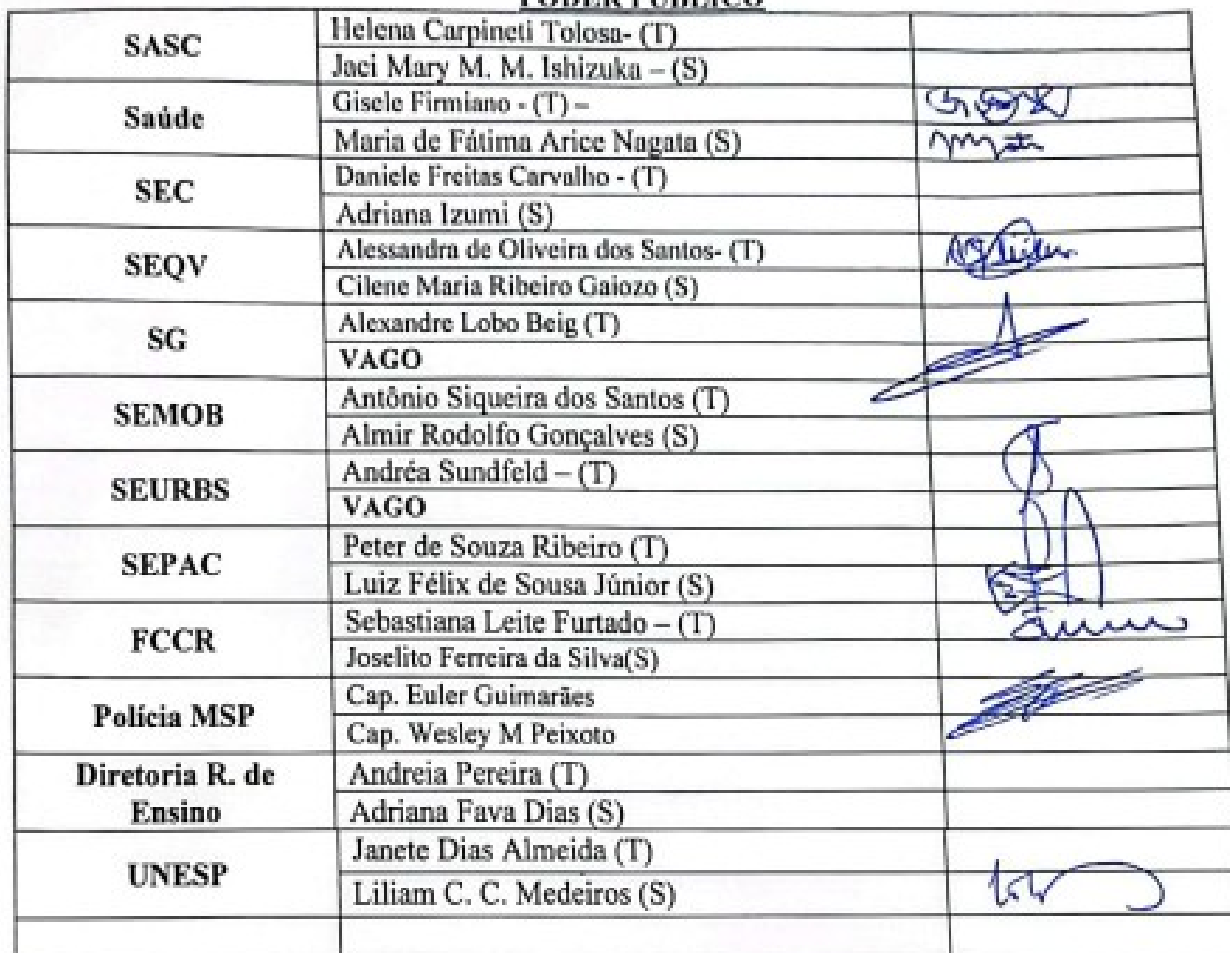 PODER PÚBLICO
SASC
Helena Carpineti Tolosa- (T)
Jaci Mary M. M. Ishizuka – (S)
Saúde
Gisele Firmiano - (T) –
Maria de Fátima Arice Nagata (S)
SEC
Daniele Freitas Carvalho - (T)
Adriana Izumi (S)
SEQV
Alessandra de Oliveira dos Santos- (T)
Cilene Maria Ribeiro Gaiozo (S)
SG
Alexandre Lobo Beig (T)
VAGO
SEMOB
Antônio Siqueira dos Santos (T)
Almir Rodolfo Gonçalves (S)
SEURBS
Andréa Sundfeld – (T)
VAGO
SEPAC
Peter de Souza Ribeiro (T)
Luiz Félix de Sousa Júnior (S)
FCCR
Sebastiana Leite Furtado – (T)
Joselito Ferreira da Silva(S)
Polícia MSP
Cap. Euler Guimarães
Cap. Wesley M Peixoto
Diretoria R. de
Ensino
Andreia Pereira (T)
Adriana Fava Dias (S)
UNESP
Janete Dias Almeida (T)
Liliam C. C. Medeiros (S)